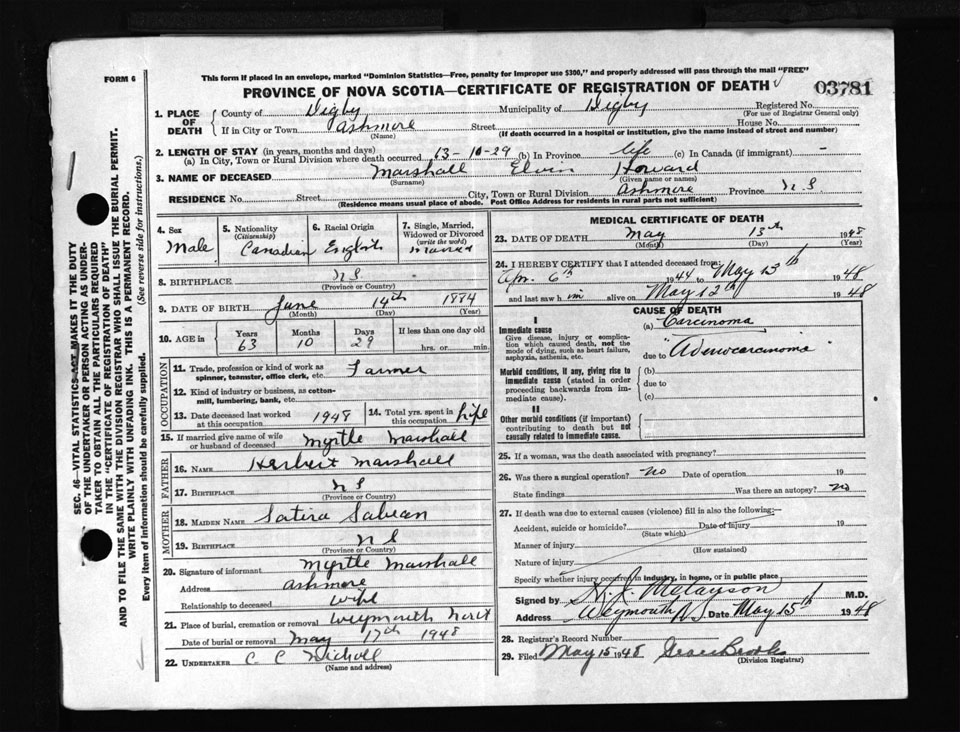 FORM 6
This form if placed in an envelope, marked "Dominion Statistics—Free, penalty for improper use $300," and properly addressed will pass through the mail "FREE"
PROVINCE OF NOVA SCOTIA—CERTIFICATE OF REGISTRATION OF DEATH
03781
1. PLACE OF DEATH County of Digby Municipality of Digby Registered No.
(For use of Registrar General only)
If in City or Town Ashmore Street House No.
(Name) (If death occurred in a hospital or institution, give the name instead of street and number)
2. LENGTH OF STAY (in years, months and days)
(a) In City, Town or Rural Division where death occurred 63-10-29 (b) In Province life (c) In Canada (if immigrant) -
3. NAME OF DECEASED Marshall Elvin Howard
(Surname) (Given name or names)
RESIDENCE No. Street City, Town or Rural Division Ashmore Province N S
(Residence means usual place of abode. Post Office Address for residents in rural parts not sufficient)
4. Sex Male
5. Nationality (Citizenship) Canadian
6. Racial Origin English
7. Single, Married, Widowed or Divorced (write the word) Married
8. BIRTHPLACE N S
(Province or Country)
9. DATE OF BIRTH June 14th 1884
(Month) (Day) (Year)
10. AGE in Years 63 Months 10 Days 29 If less than one day old hrs. or min.
OCCUPATION
11. Trade, profession or kind of work as spinner, teamster, office clerk, etc. Farmer
12. Kind of industry or business, as cotton-mill, lumbering, bank, etc.
13. Date deceased last worked at this occupation 1948
14. Total yrs. spent in this occupation life
15. If married give name of wife or husband of deceased Myrtle Marshall
FATHER
16. NAME Herbert Marshall
17. BIRTHPLACE N S
(Province or Country)
MOTHER
18. MAIDEN NAME Satira Sabean
19. BIRTHPLACE N S
(Province or Country)
20. Signature of informant Myrtle Marshall
Address Ashmore
Relationship to deceased wife
21. Place of burial, cremation or removal Weymouth North
Date of burial or removal May 17th 1948
22. UNDERTAKER C C Nicholl
(Name and address)
MEDICAL CERTIFICATE OF DEATH
23. DATE OF DEATH May 13th 1948
(Month) (Day) (Year)
24. I HEREBY CERTIFY that I attended deceased from:
Apr. 6th 1944 to May 13th 1948
and last saw him alive on May 12th 1948
CAUSE OF DEATH
I
Immediate cause
Give disease, injury or complication which caused death, not the mode of dying, such as heart failure, asphyxia, asthenia, etc.
(a) Carcinoma
due to "Adenocarcinoma
Morbid conditions, if any, giving rise to immediate cause (stated in order proceeding backwards from immediate cause).
(b)
due to
(c)
II
Other morbid conditions (if important) contributing to death but not causally related to immediate cause.
25. If a woman, was the death associated with pregnancy?
26. Was there a surgical operation? No Date of operation 19
State findings Was there an autopsy? No
27. If death was due to external causes (violence) fill in also the following:—
Accident, suicide or homicide? Date of injury 19
(State which)
Manner of injury
(How sustained)
Nature of injury
Specify whether injury occurred in industry, in home, or in public place
Signed by M.D.
Address Weymouth N.S. Date May 15th 1948
28. Registrar's Record Number
29. Filed May 15 1948
(Division Registrar)
SEC. 46—VITAL STATISTICS ACT MAKES IT THE DUTY
OF THE UNDERTAKER OR PERSON ACTING AS UNDER-
TAKER TO OBTAIN ALL THE PARTICULARS REQUIRED
IN THE "CERTIFICATE OF REGISTRATION OF DEATH"
AND TO FILE THE SAME WITH THE DIVISION REGISTRAR WHO SHALL ISSUE THE BURIAL PERMIT.
WRITE PLAINLY WITH UNFADING INK. THIS IS A PERMANENT RECORD.
Every item of information should be carefully supplied. (See reverse side for instructions.)